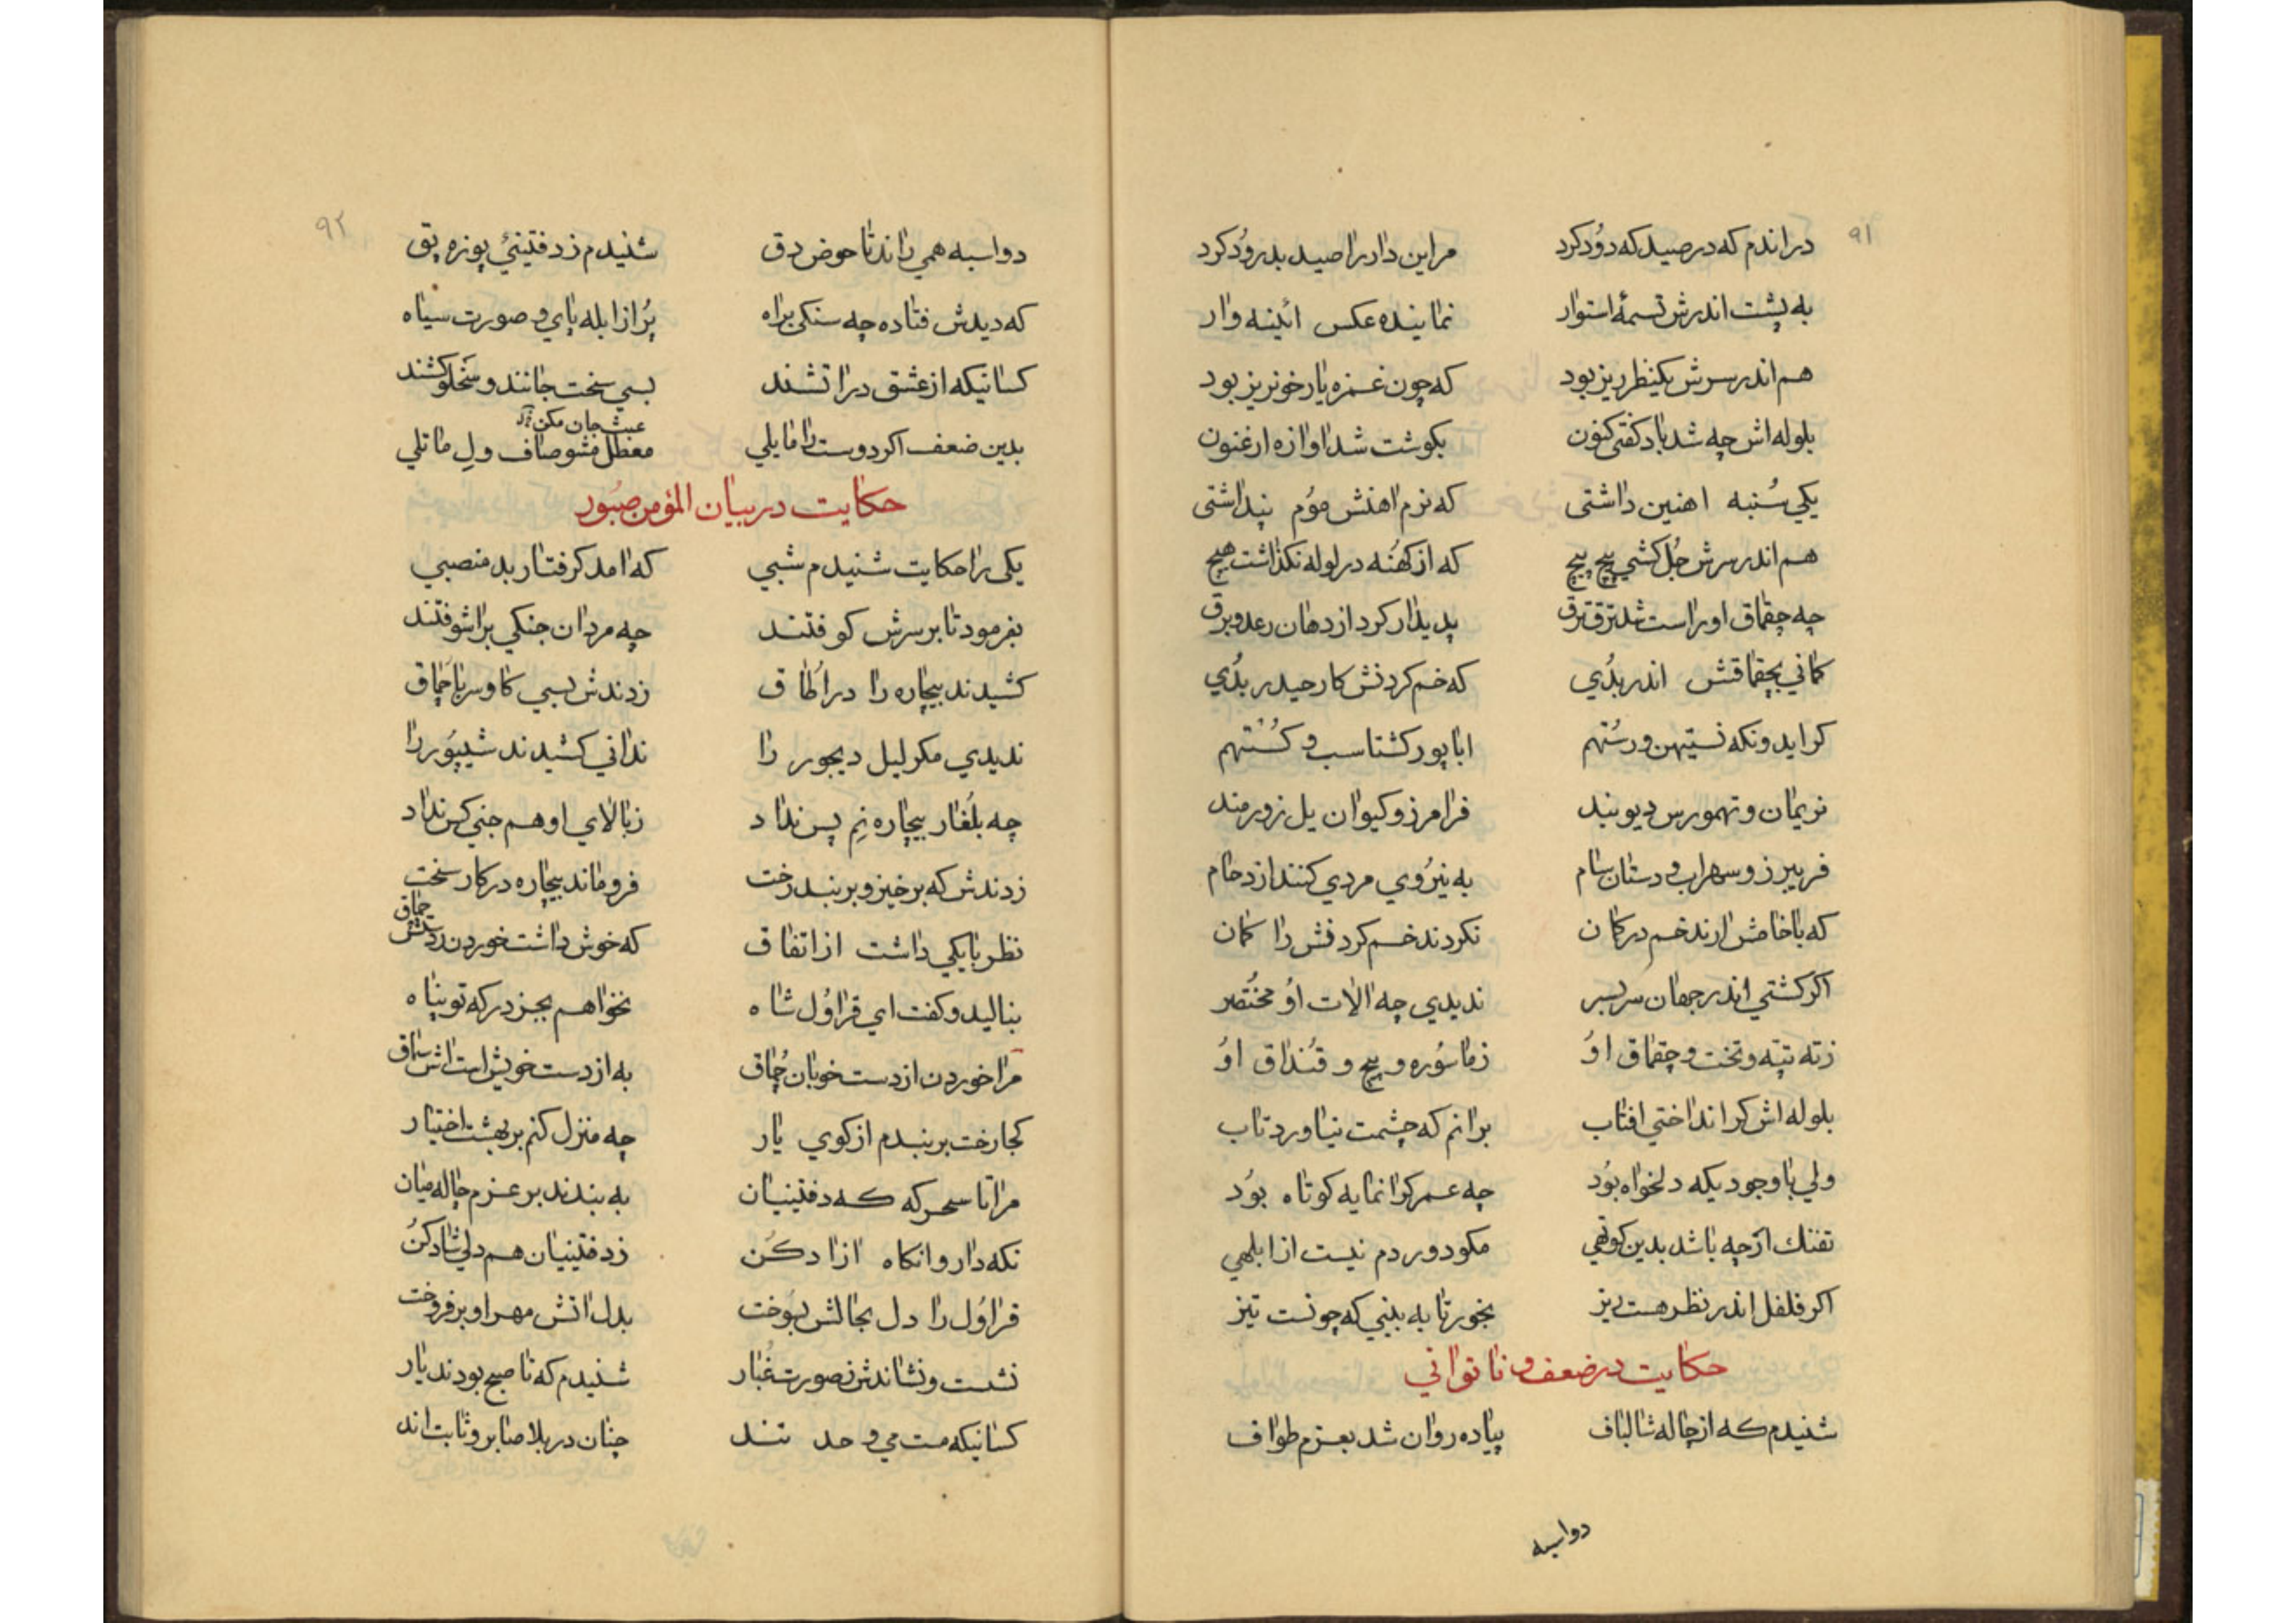 ۹۱
در اندم که در صید که دوُد کرد مر این دار را صید بدروُد کرد
به پشت اندرش تسمهٔ استوار نماینده عکس ائینه وار
هم اندر سرش یکنظر ریز بود که چون غمزه یار خونریز بود
بلوله اش چه شد باد کفتی کنون بکوشت شد اوازه ارغنون
یکی سُنبه اهنین داشتی که نرم اهنش موُم پنداشتی
هم اندر سرش جُل کشی پیچ پیچ که از کهُنه در لوله نکذاشت هیچ
چه چقماق او راست شد ترق ترق پدیدار کرد از دهان رعد و برق
کمانی بچقماقش اندر بدُی که خم کردنش کار حیدر بدُی
کر ایدونکه نستیهن و رسُتهم ابا پور کشتاسب و کسُتهم
نریمان و تهمورس دیو بند فرامرز و کیوان یل زورمند
فریبرز و سهراب و دستان سام به نیرُوی مردی کنند ازدحام
که با خامش ارند خم در کمان نکردند خم کرد فش را کمان
اکر کشتی اندر جهان سر بسر ندیدی چه الات اوُ مختُصر
زته تپه و تخت و چقماق اوُ زماسوُره و پیچ و قنُداق اوُ
بلوله اش کر انداختی افتاب برانم که چشمت نیاورد تاب
ولی با وجودیکه دلخواه بوُد چه عمر کرانمایه کوتاه بوُد
تفنك ار چه باشد بدین کوتهی مکو دور دم نیست از ابلهی
اکر فلفل اندر نظر هست ریز بخور تا به بینی که چونست تیز
حکایت در ضعف و ناتوانی
شنیدم که از چاله شالباف پیاده روان شد بعزم طواف
دواسبه
۹۲
دواسبه همی راند تا حوض دق شنیدم زدفتینیٔ پوزه پق
که دیدش فتاده چه سنکی براه پُر از ابله پای و صورت سیاه
کسانیکه از عشق در اتشند بسی سخت جانند و سخلو کشند
عبث جان مکن
بدین ضعف اکر دوست را مایلی معطل مشو صاف ول ماتلی
حکایت در بیان المؤمن صبُور
یکی را حکایت شنیدم شبی که امد کرفتار بد منصبی
بفرمود تا بر سرش کوفتند چه مردان جنکی براشوفتند
کشیدند بیچاره را در اُطاق زدندش بسی کاو سر با چُماق
ندیدی مکر لیل دیجور را ندانی کشیدند شیپوُر را
چه بلُغار بیچاره نِم پس نداد زبالای او هم جنی کس نداد
زدندش که برخیز و بر بند رخت فروماند بیچاره در کار سخت
نظر با یکی داشت از اتفاق که خوش داشت خوردن زدستش چماق
بنالید و کفت ای قراوُل شاه نخواهم بجز درکه تو پناه
مرا خوردن از دست خوبان چُماق به از دست خویش است اش سماق
کجا رخت بر بندم از کوی یار چه منزل کنم بر بهشت اختیار
مرا تا سحرکه که دفتینیان به بندند بر عزم چاله میان
نکه دار وانکاه ازاد کُن زدفتینیان هم دلی شاد کنُ
قراوُل را دل بحالش بسوُخت بدل اتش مهر او بر فروخت
نشست و نشاندش زصورت غُبار شنیدم که تا صبح بودند یار
کسانیکه مست می وحد تند چنان در بلا صابر و ثابت اند